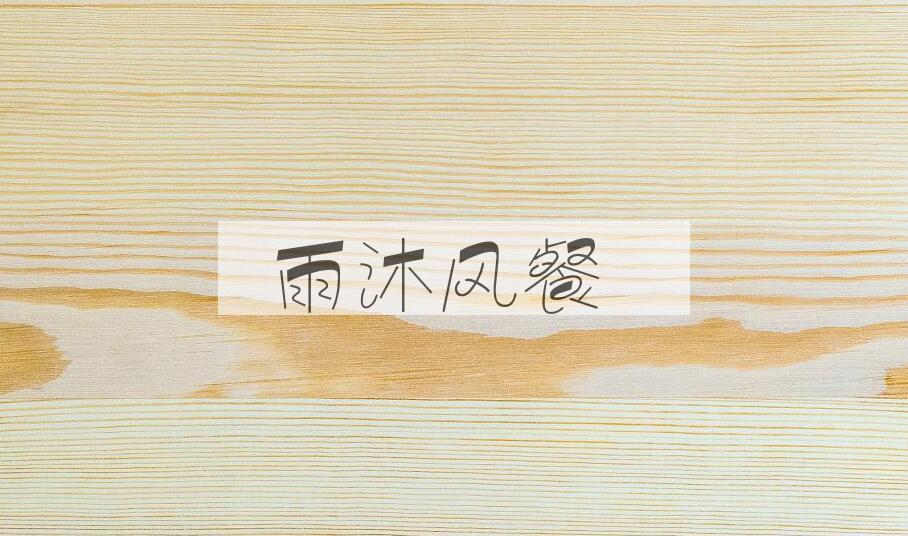 雨沐风餐